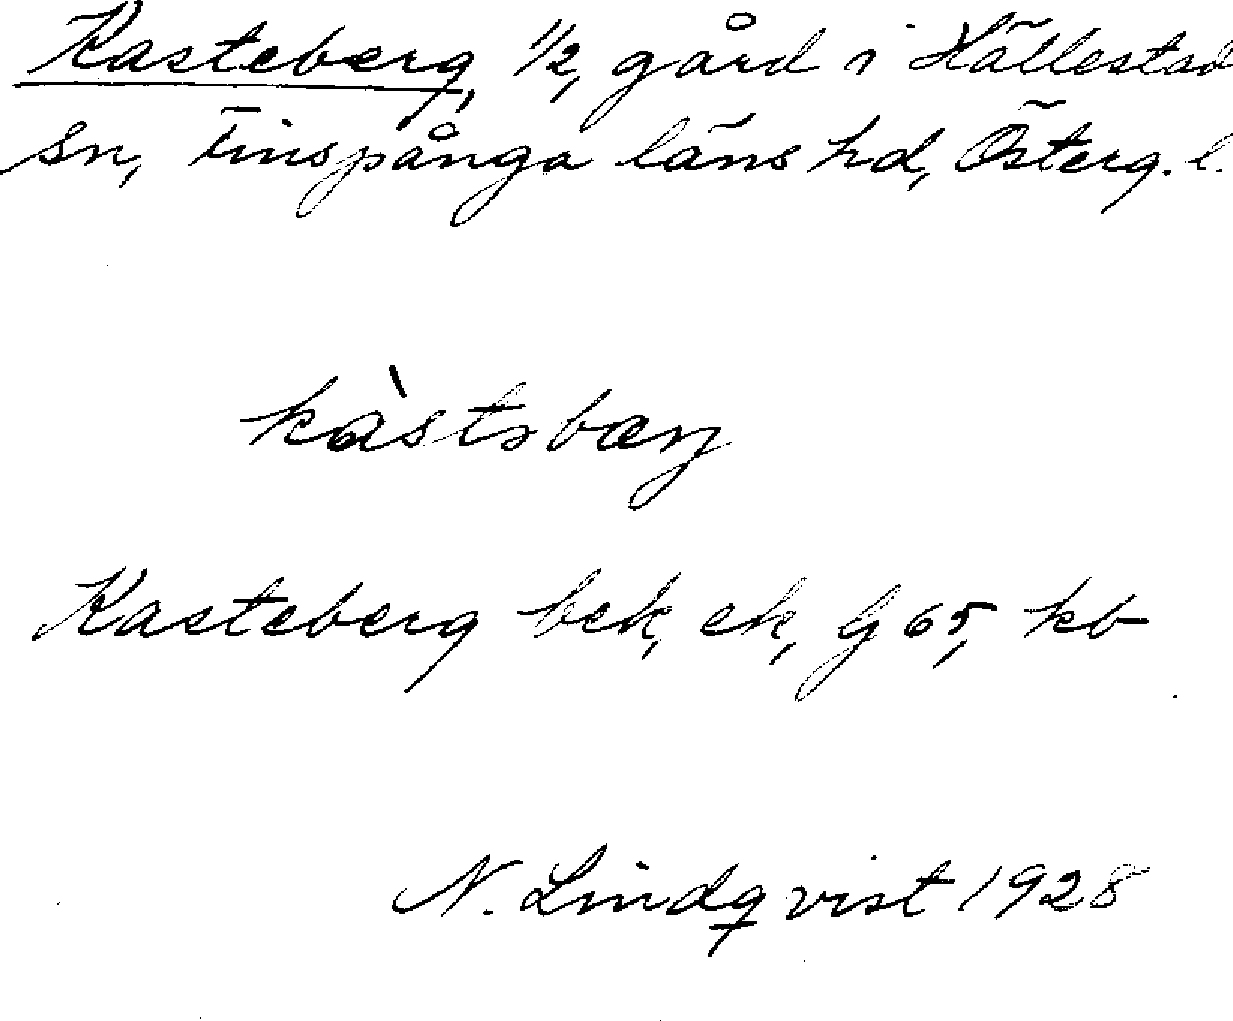 Kasteberg, 1/2, gård i Hällestad
sn, Finspånga läns hd, Österg. l.
kàstəbærj
Kasteberg bek, ek, G 65, kb
N. Lindqvist 1928